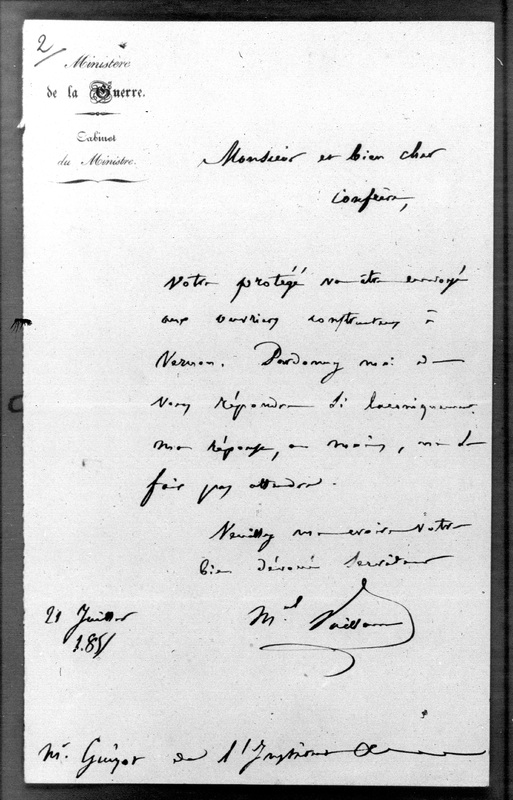 2/
Ministère
de la Guerre.
Cabinet
du Ministre.
Monsieur et bien cher
confrère,
Votre protégé va être envoyé
aux ouvriers constructeurs à
Vernon. Pardonnez moi de
vous répondre si laconiquement.
ma réponse, au moins, ne se
fait pas attendre.
Veuillez me croire votre
bien dévoué serviteur
Mal Vaillant
21 Juillet
Mr. Guizot de l'Institut